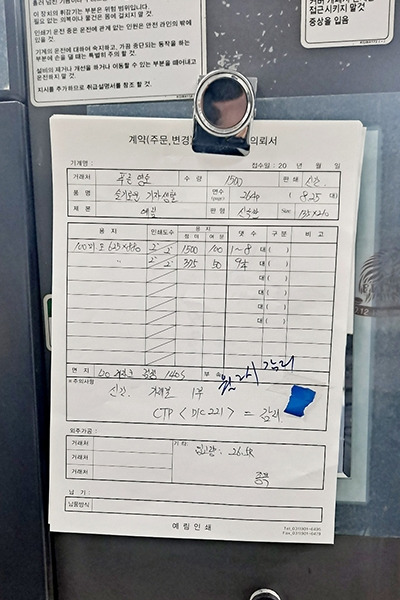 이 장치의 취급기는 부분은 위험 범위입니다.
필요 없는 의복이나 물건은 몸에 걸치지 말 것.
인쇄기 운전 중은 운전에 관계 없는 인원은 안전 라인의 밖에 있을 것.
기계의 운전에 대하여 숙지하고, 가끔 중단되는 동작을 하는 부분에 손을 댈 때는 특별히 주의 할 것.
설비의 제거나 개선을 하거나 이동할 수 있는 부분을 떼어내고 운전하지 말 것.
지시를 추가하므로 취급설명서를 참조 할 것.
접근시키지 말것
중상을 입음
계약(주문,변경) 의뢰서
기계명 : 접수일 : 20 년 월 일
거래처 푸른영토 수량 1500 판쇄 신간.
품명 슬기로운 기자생활 면수(page) 264p (8.25 대)
제본 예림 판형 신국판 Size 135×210
용지 인쇄도수 용지 정미 여분 댓수 구분 비고
2° 2° 1500 100 1~8 대( )
〃 2° 2° 375 50 9대 대( )
대( )
대( )
대( )
대( )
대( )
면지 140g 부속
*주의사항
신간. 거래본 1부
CTP < DIC 221 > = 감리
외주가공 :
거래처 기타.
거래처
거래처
납기 :
납품방식
예림인쇄
Tel_031)901-6495
Fax_031)901-6479